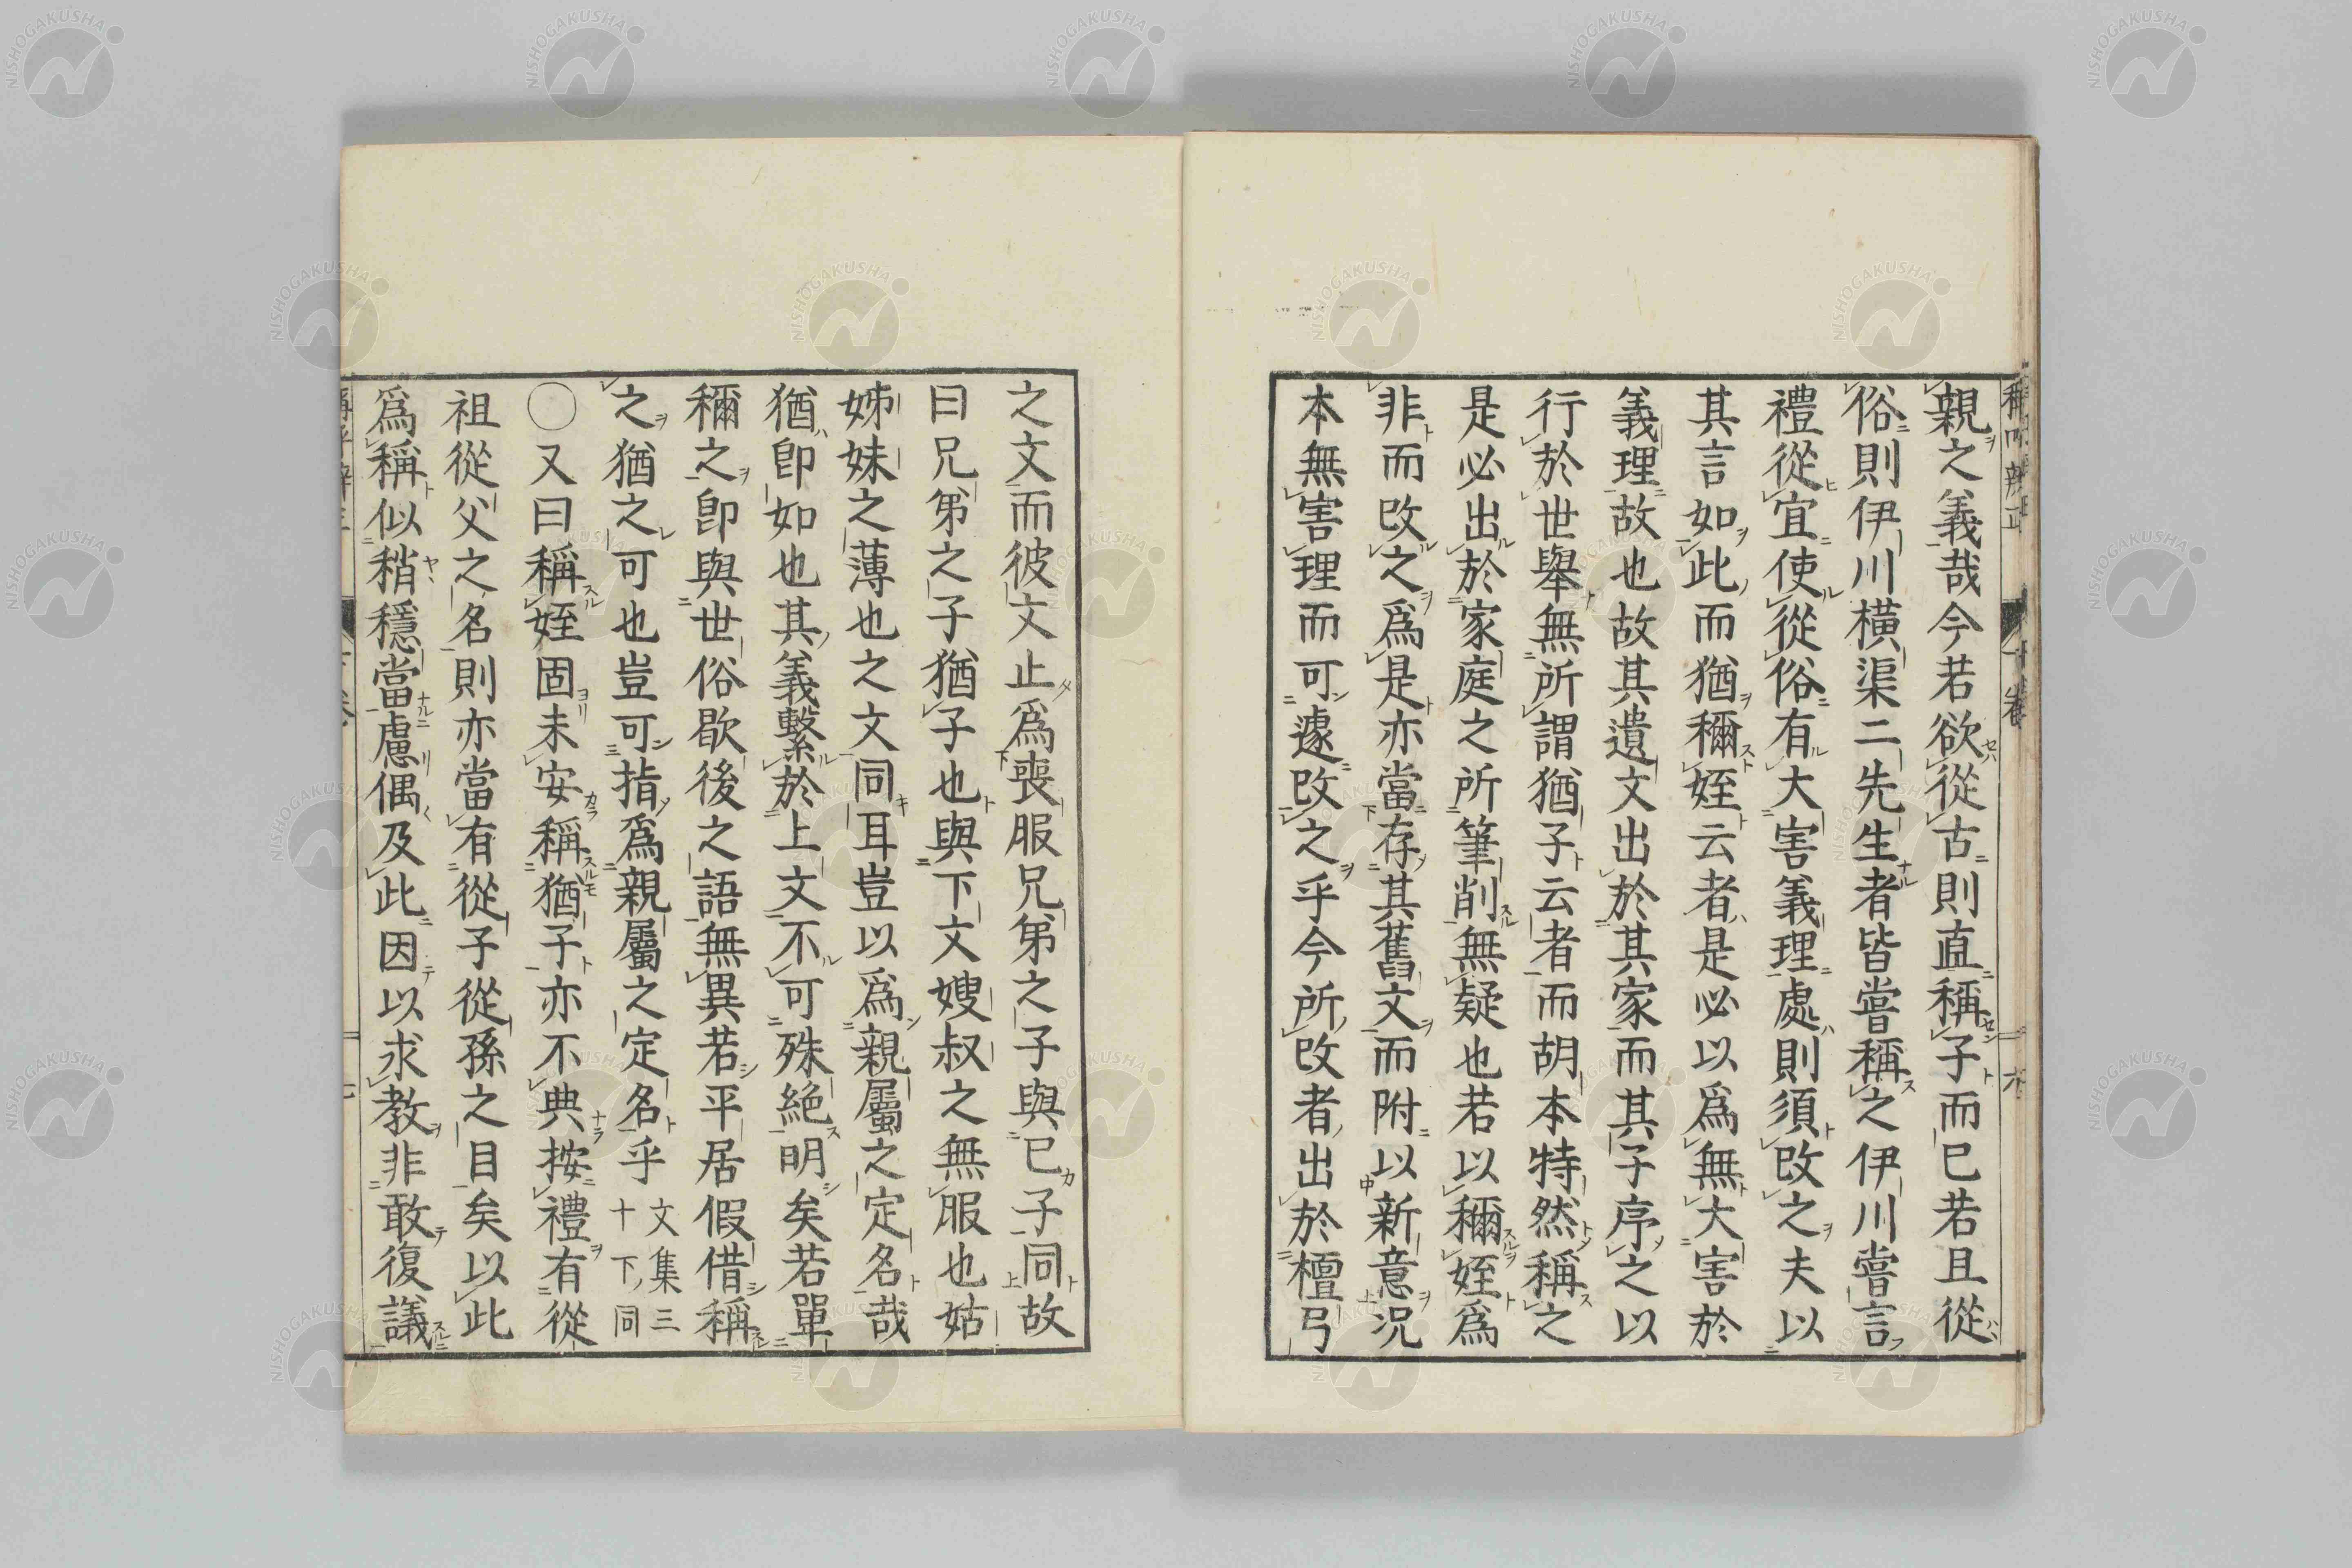 親之義哉今若欲從古則直稱子而已若且從
俗則伊川橫渠二先生者皆嘗稱之伊川嘗言
禮從宜使從俗有大害義理處則須改之夫以
其言如此而猶稱姪云者是必以爲無大害於
義理故也故其遺文出於其家而其子序之以
行於世舉無所謂猶子云者而胡本特然稱之
是必出於家庭之所筆削無疑也若以稱姪爲
非而改之爲是亦當存其舊文而附以新意況
本無害理而可遽改之乎今所改者出於檀弓
之文而彼文止爲喪服兄弟之子與己子同故
曰兄弟之子猶子也與下文嫂叔之無服也姑
姊妹之薄也之文同耳豈以爲親屬之定名哉
猶即如也其義繫於上文不可殊絶明矣若單
稱之即與世俗歇後之語無異若平居假借稱
之猶之可也豈可指爲親屬之定名乎文集三十下同
〇又曰稱姪固未安稱猶子亦不典按禮有從
祖從父之名則亦當有從子從孫之目矣以此
爲稱似稍穩當慮偶及此因以求教非敢復議
NISHOGAKUSHA